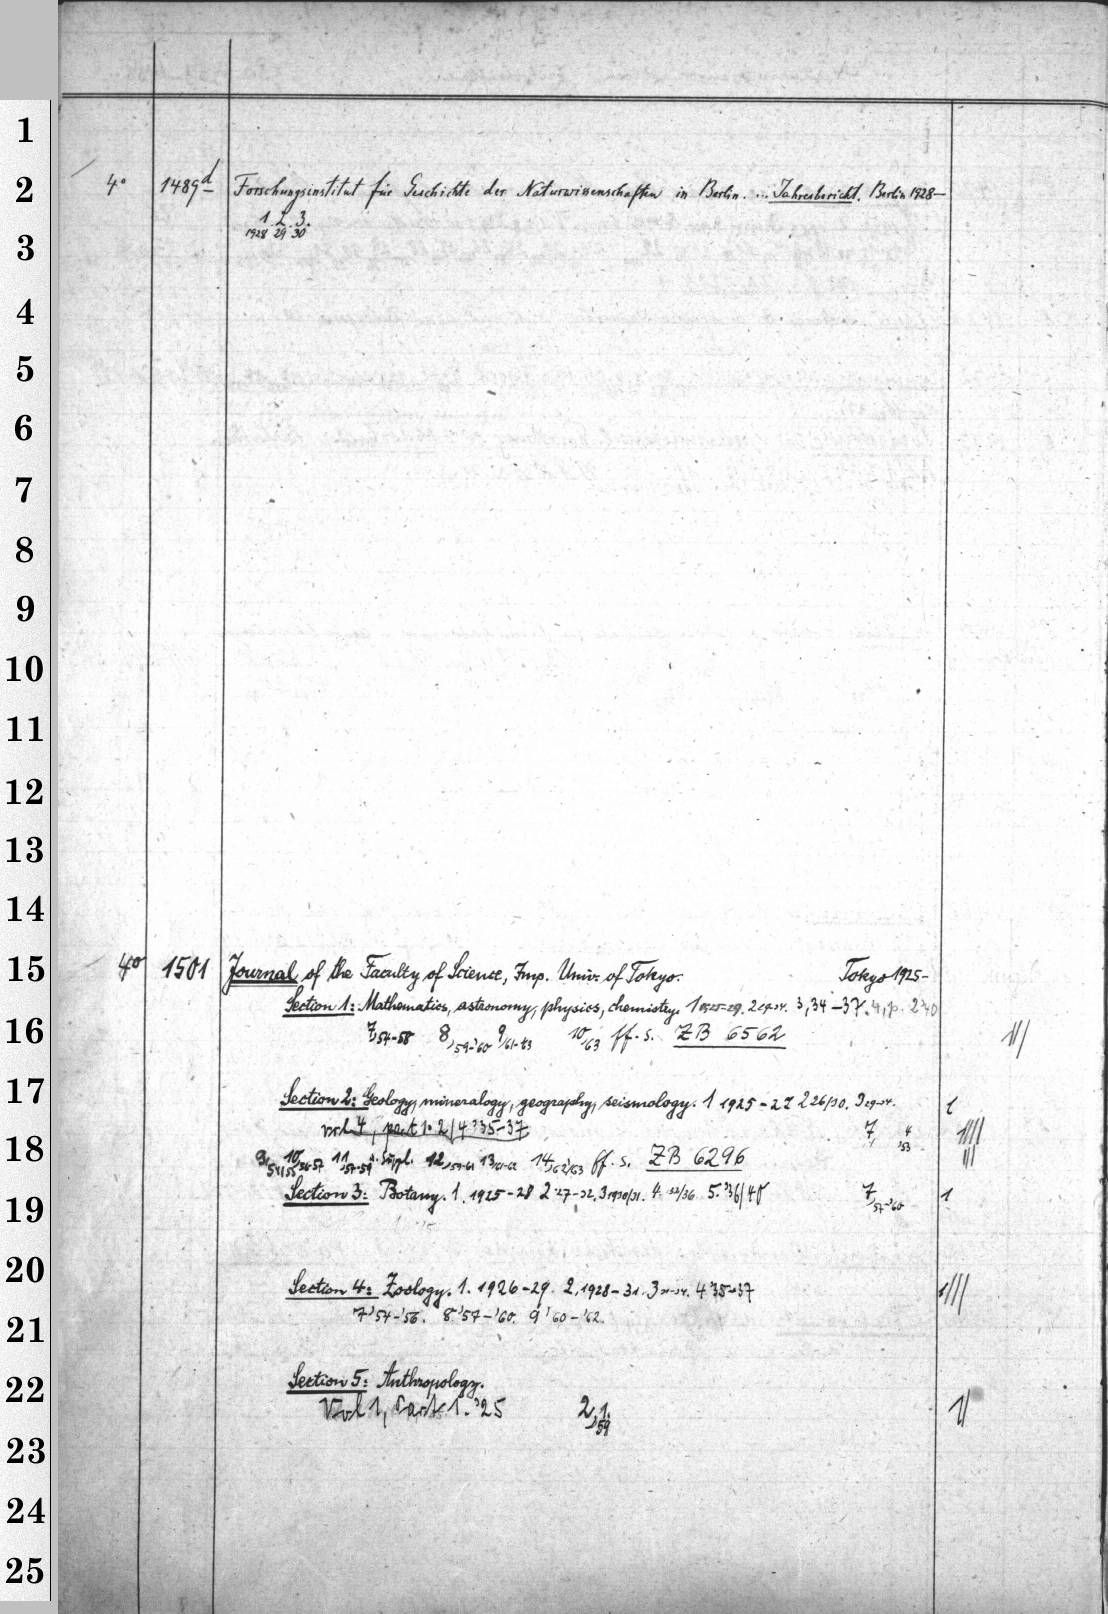 1
2 4° 1489d Forschungsinstitut für Geschichte der Naturwissenschaften in Berlin. ... Jahresbericht. Berlin 1928—
1. 2. 3.
1928 29 30
3
4
5
6
7
8
9
10
11
12
13
14
15 4° 1501 Journal of the Faculty of Science, Imp. Univ. of Tokyo. Tokyo 1925-
Section 1: Mathematics, astronomy, physics, chemistry. 1 1925-29. 2 3,34-37. 4, p. 240
16 7,54-58 8,59-'60 9/61-63 10/63 ff. s. ZB 6562
17 Section 2: Geology, mineralogy, geography, seismology. 1 1925-27 2 26/30. 3 29-34. 1
vol 4, part 1. 2/4 '35-37 7 4 '53
18 10 56-57 11 57-59 u. Suppl. 12,59-61 13/61-62 14,62/63 ff. s. ZB 6296
19 Section 3: Botany. 1. 1925-28 2 '27-32, 3 1930/31. 4 32/36. 5. '36/40 7,57-'60 1
20 Section 4: Zoology. 1. 1926-29. 2, 1928-31. 3 31-34. 4 '35-37
21 7 '54-'56. 8 '57-'60. 9 '60-'62.
22 Section 5: Anthropology.
Vol 1, Part 1. '25 2,1. '59
23
24
25